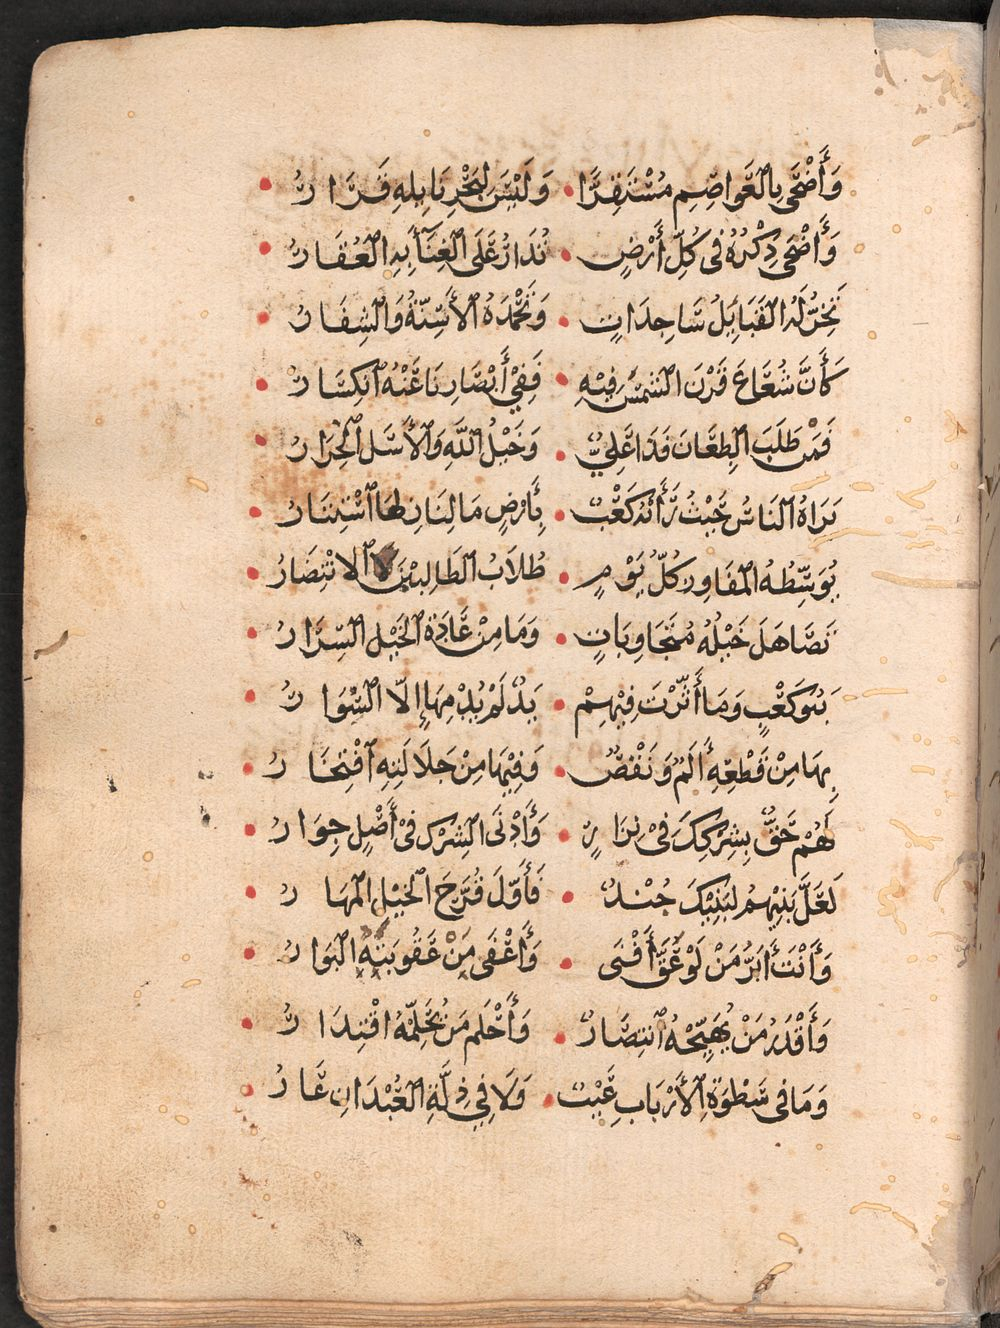 وَأَضْحَى بِالْعَوَاصِمِ مُسْتَقِرًّا • وَلَيْسَ لِبَحْرِ نَايِلِهِ قَرَارُ •
وَأَضْحَى ذِكْرُهُ فِي كُلِّ أَرْضٍ • تُدَارُ عَلَى الْغِنَآءِ بِهِ الْعُقَارُ •
تَخِرُّ لَهُ الْقَبَايِلُ سَاجِدَاتٍ • وَتَحْمَدُهُ الْأَسِنَّةُ وَالشِفَارُ •
كَأَنَّ شُعَاعَ قَرْنِ الشَمْسِ فِيْهِ • فَفِيْ أَبْصَارِنَا عَنْهُ انْكِسَارُ •
فَمَنْ طَلَبَ الطِعَانَ فَذَا عَلِيٌّ • وَخَيْلُ اللَّهِ وَالْأَسَلُ الْحِرَارُ •
يَرَاهُ النَاسُ حَيْثُ رَأَتْهُ كَعْبٌ • بِأَرْضٍ مَا لِنَازِلِهَا اسْتِتَارُ •
يُوَسِّطُهُ الْمَفَاوِزَ كُلَّ يَوْمٍ • طُلَابُ الطَالِبِيْنَ لَا الانْتِضَارُ •
تَصَاهَلُ خَيْلُهُ مُتَجَاوِبَاتٍ • وَمَا مِنْ عَادَةِ الْخَيْلِ السِرَارُ •
بَنُو كَعْبٍ وَمَا أَثَّرْتَ فِيْهِمْ • يَدٌ لَمْ يُدْمِهَا إِلَّا السِّوَارُ •
بِهَا مِنْ قَطْعِهِ أَلَمٌ وَنَقْصٌ • وَفِيْهَا مِنْ جَلَالَتِهِ افْتِخَارُ •
لَهُمْ حَقٌّ بِشِرْكِكَ فِيْ نِزَارٍ • وَأَدْنَى الشِرْكِ فِيْ أَصْلٍ جِوَارُ •
لَعَلَّ بَنِيْهِمُ لِبَنِيْكَ جُنْدٌ • فَأَوَّلُ قُرَّحِ الْخَيْلِ الْمِهَارُ •
وَأَنْتَ أَبَرُّ مَنْ لَوْ عُقَّ أَفْنَى • وَأَعْفَى مَنْ عُقُوبَتُهُ الْبَوَارُ •
وَأَقْدَرُ مَنْ يُهَيِّجُهُ انْتِصَارٌ • وَأَحْلَمُ مَنْ يُحَلِّمُهُ اقْتِدَارُ •
وَمَا فِي سَطْوَةِ الْأَرْبَابِ عَيْبٌ • وَلَا فِي ذِلَّةِ الْعُبْدَانِ عَارُ •